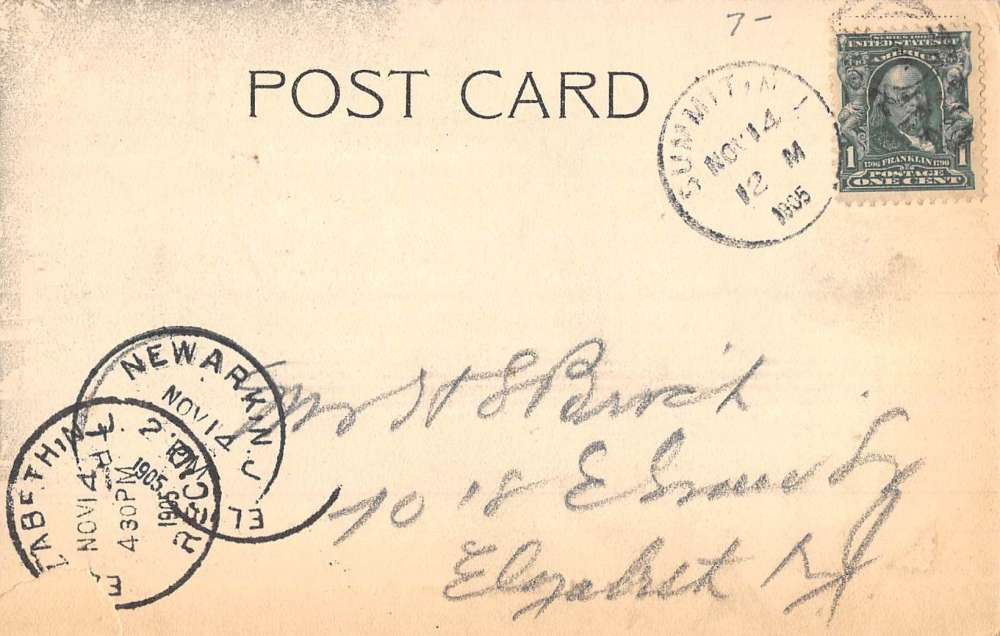 7-
POST CARD
SUMMIT, N.J.
NOV 14
12 M
1905
SERIES 1902
UNITED STATES OF
AMERICA
1 1706 FRANKLIN 1790 1
POSTAGE
ONE CENT
NEWARK, N.J.
NOV 14
2 PM
1905
ABETH, N.J.
NOV 14
4 30 PM
1905
REC'D
H S
10 18 E
Elizabeth NJ